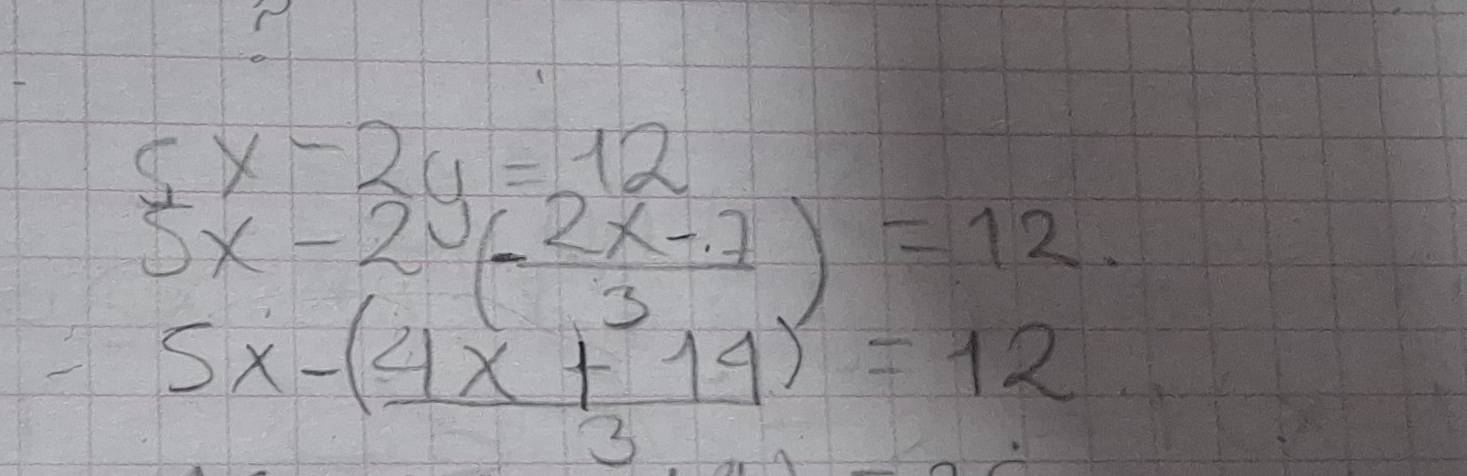 5x - 2y = 12
5x - 2y(-2x - 7/3) = 12.
- 5x - (4x + 14/3) = 12